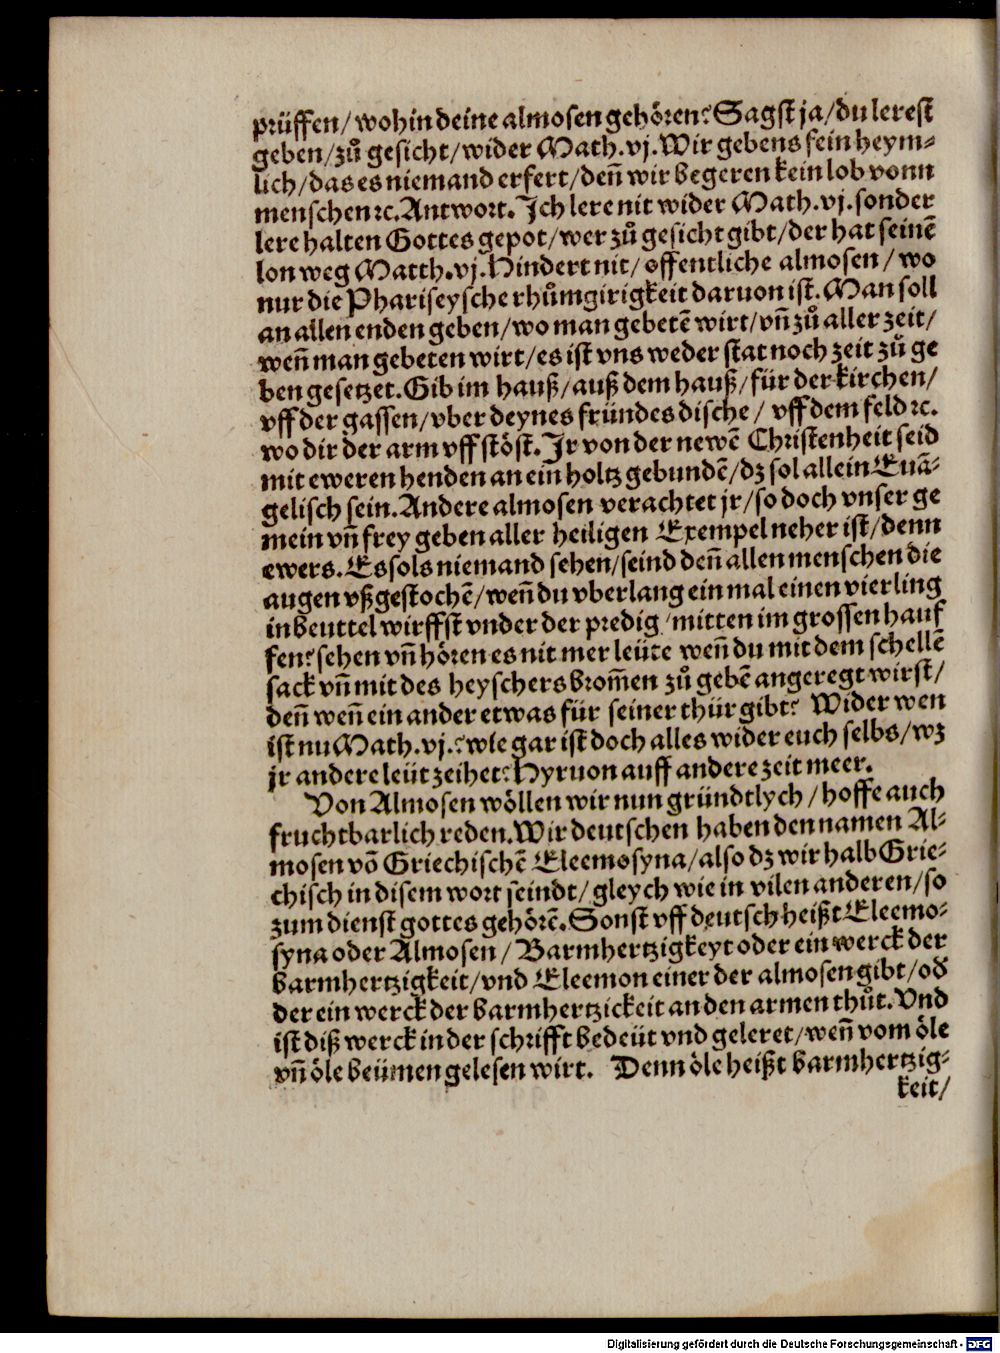 prüffen/ wohin deine almosen gehören? Sagst ja/ du lerest
geben/ zů gesicht/ wider Math.vj. Wir gebens fein heym⸗
lich/ das es niemand erfert/ deñ wir begeren kein lob vonn
menschen ꝛc. Antwort. Ich lere nit wider Math.vj. sonder
lere halten Gottes gepot/ wer zů gesicht gibt/ der hat seinē
lon weg Matth.vj. Hindert nit/ offentliche almosen/ wo
nur die Phariseysche rhůmgirigkeit daruon ist. Man soll
an allen enden geben/ wo man gebetē wirt/ vñ zů aller zeit/
weñ man gebeten wirt/ es ist vns weder stat noch zeit zů ge
ben gesetzet. Gib im hauß/ auß dem hauß/ für der kirchen/
vff der gassen/ vber deynes fründes dische/ vff dem feld ꝛc.
wo dir der arm vff stöst. Ir von der newē Christenheit seid
mit eweren henden an ein holtz gebundē/ dz sol allein Euā⸗
gelisch sein. Andere almosen verachtet jr/ so doch vnser ge
mein vñ frey geben aller heiligen Exempel neher ist/ denn
ewers. Es sols niemand sehen/ seind deñ allen menschen die
augen vßgestochē/ weñ du vberlang ein mal einen vierling
in beuttel wirffst vnder der predig/ mitten im grossen hauf
fen? sehen vñ hören es nit mer leüte weñ du mit dem schellē
sack vñ mit des heyschers brom̄en zů gebē angeregt wirst/
deñ weñ ein ander etwas für seiner thür gibt? Wider wen
ist nu Math.vj.? wie gar ist doch alles wider euch selbs/ wz
jr andere leüt zeihet? Hyruon auff andere zeit meer.
Von Almosen wöllen wir nun gründtlych/ hoffe auch
fruchtbarlich reden. Wir deutschen haben den namen Al⸗
mosen vō Griechischē Eleemosyna/ also dz wir halb Grie⸗
chisch in disem wort seindt/ gleych wie in vilen anderen/ so
zum dienst gottes gehörē. Sonst vff deutsch heißt Eleemo⸗
syna oder Almosen/ Barmhertzigkeyt oder ein werck der
barmhertzigkeit/ vnd Eleemon einer der almosen gibt/ od
der ein werck der barmhertzickeit an den armen thůt. Vnd
ist diß werck in der schrifft bedeüt vnd geleret/ weñ vom öle
vñ öle beümen gelesen wirt. Denn öle heißt barmhertzig⸗
keit/
Digitalisierung gefördert durch die Deutsche Forschungsgemeinschaft - DFG